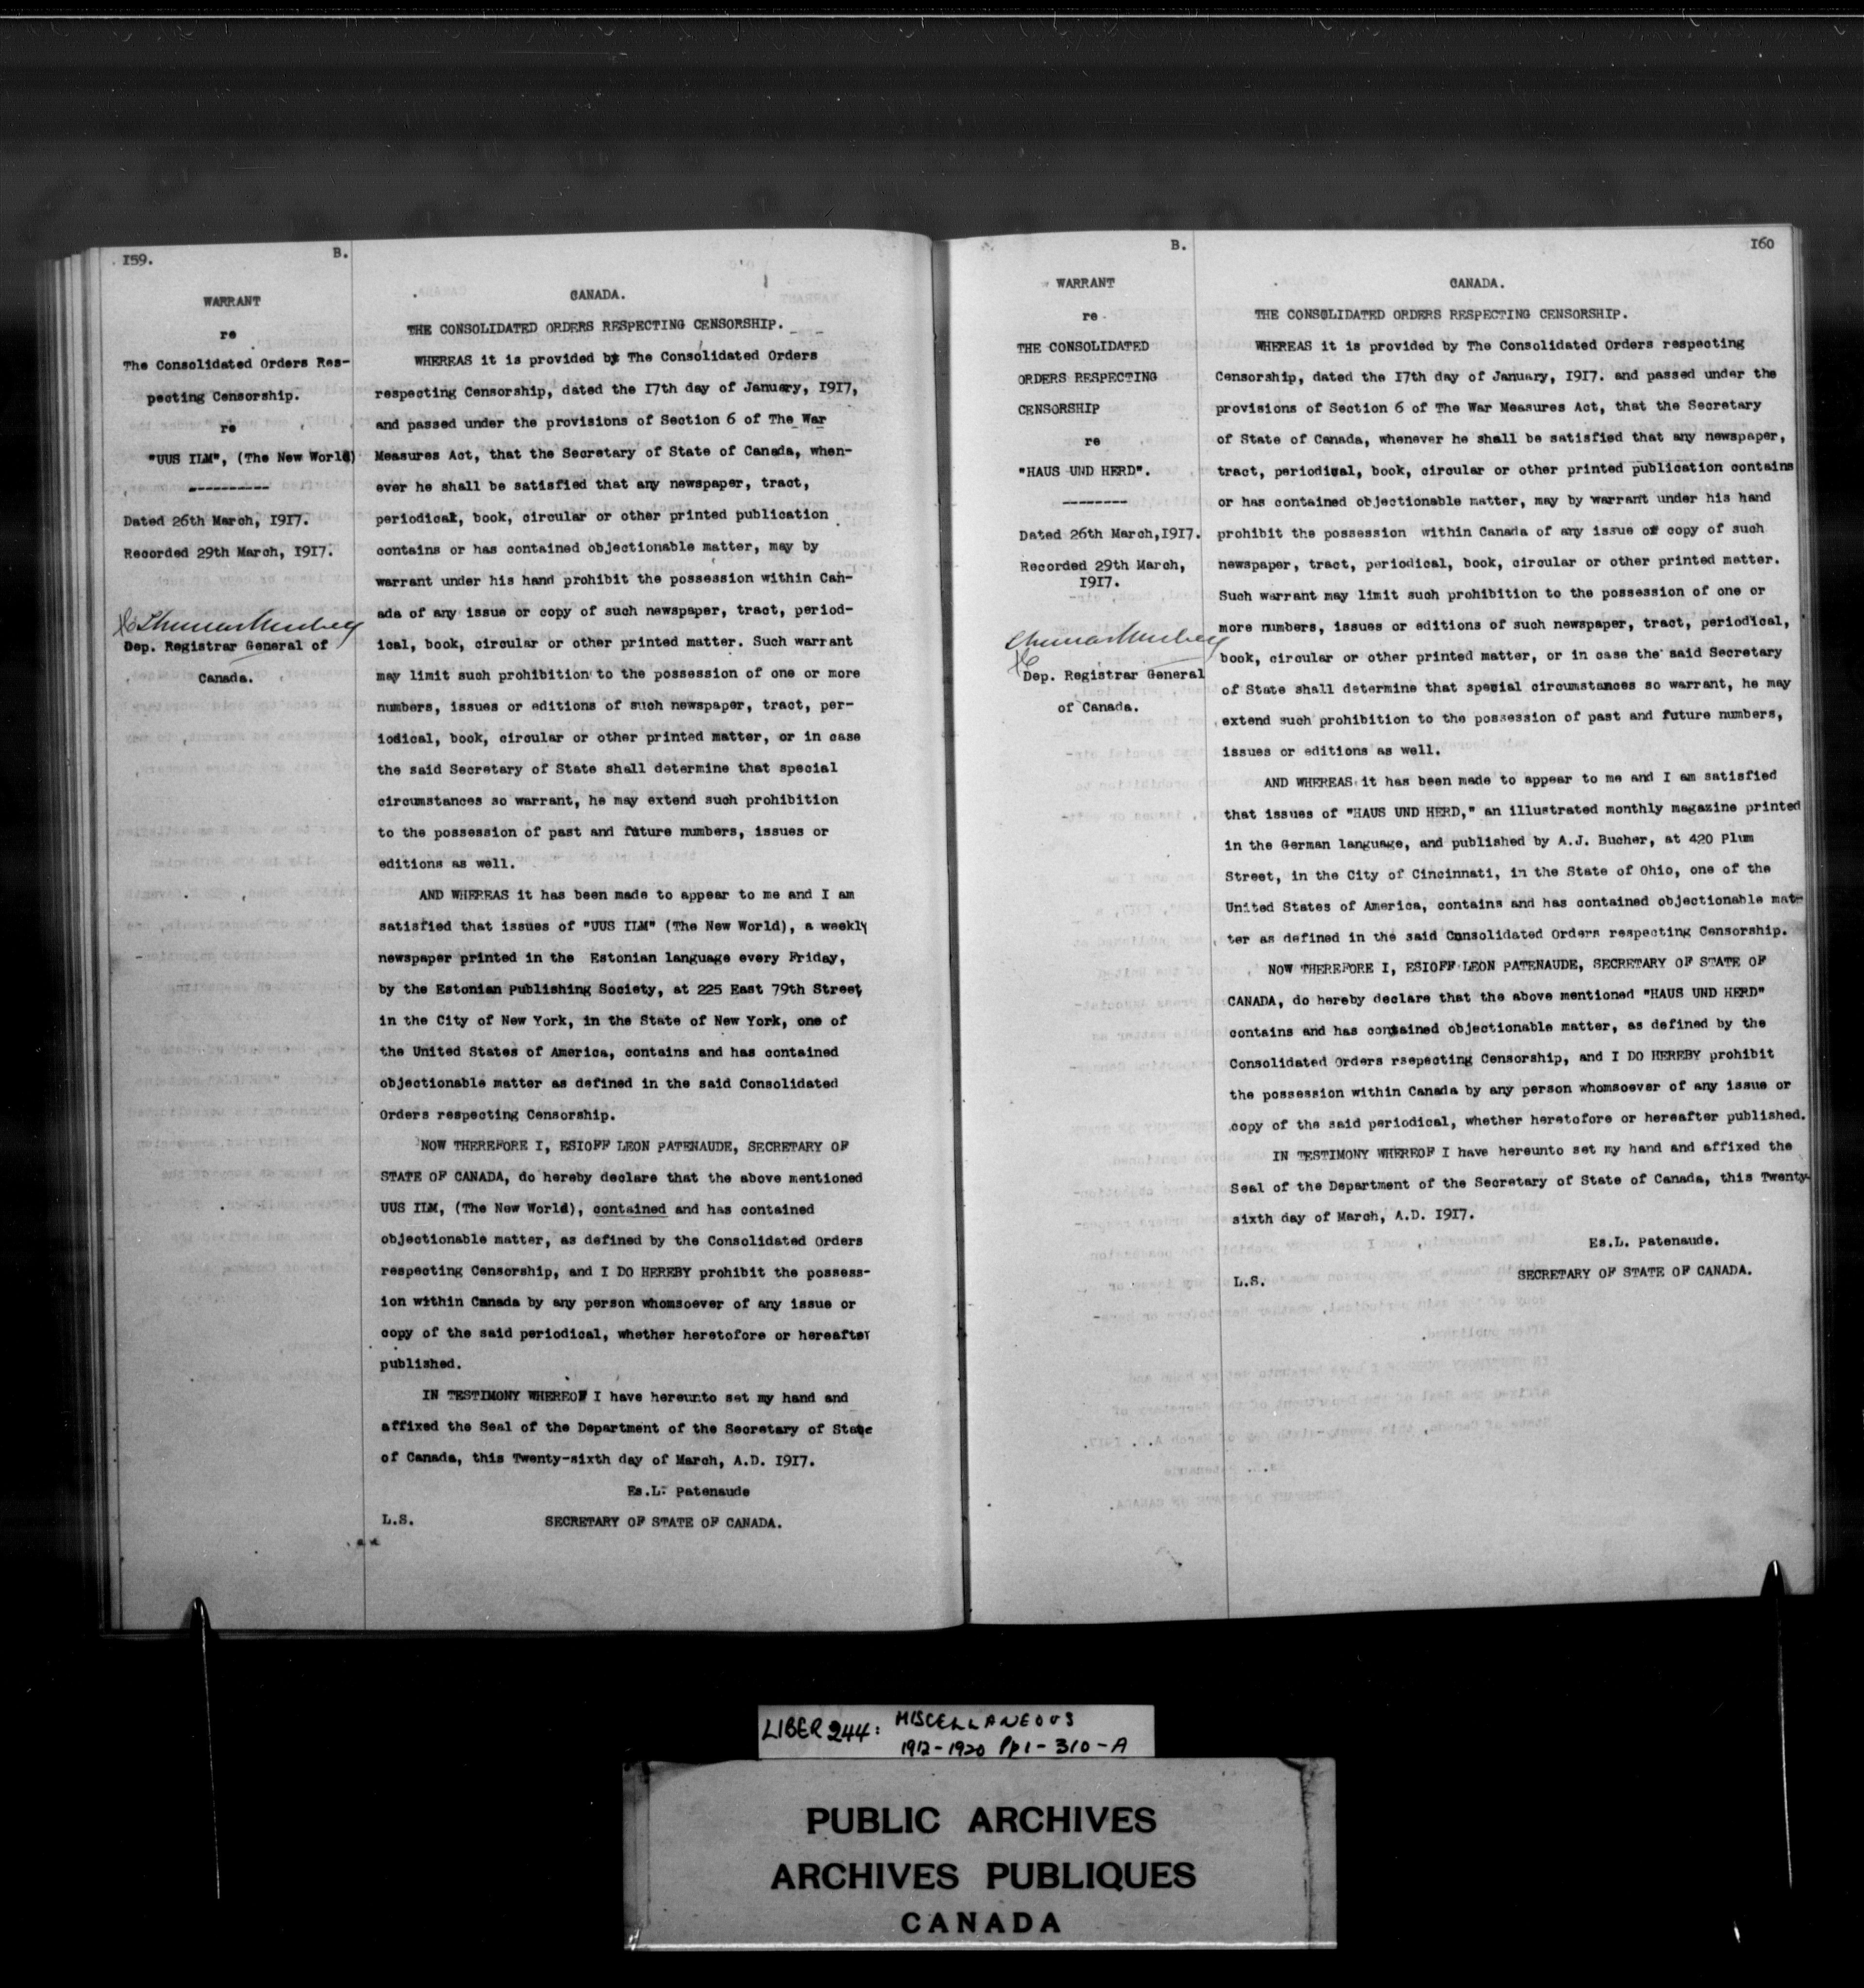 159.
B.
WARRANT
re
The Consolidated Orders Res-
pecting Censorship.
re
"UUS ILM", (The New World)
----------
Dated 26th March, 1917.
Recorded 29th March, 1917.
Dep. Registrar General of
Canada.
CANADA.
THE CONSOLIDATED ORDERS RESPECTING CENSORSHIP.
WHEREAS it is provided by The Consolidated Orders
respecting Censorship, dated the 17th day of January, 1917,
and passed under the provisions of Section 6 of The War
Measures Act, that the Secretary of State of Canada, when-
ever he shall be satisfied that any newspaper, tract,
periodical, book, circular or other printed publication
contains or has contained objectionable matter, may by
warrant under his hand prohibit the possession within Can-
ada of any issue or copy of such newspaper, tract, period-
ical, book, circular or other printed matter. Such warrant
may limit such prohibition to the possession of one or more
numbers, issues or editions of such newspaper, tract, per-
iodical, book, circular or other printed matter, or in case
the said Secretary of State shall determine that special
circumstances so warrant, he may extend such prohibition
to the possession of past and future numbers, issues or
editions as well.
AND WHEREAS it has been made to appear to me and I am
satisfied that issues of "UUS ILM" (The New World), a weekly
newspaper printed in the Estonian language every Friday,
by the Estonian Publishing Society, at 225 East 79th Street,
in the City of New York, in the State of New York, one of
the United States of America, contains and has contained
objectionable matter as defined in the said Consolidated
Orders respecting Censorship.
NOW THEREFORE I, ESIOFF LEON PATENAUDE, SECRETARY OF
STATE OF CANADA, do hereby declare that the above mentioned
UUS ILM, (The New World), contained and has contained
objectionable matter, as defined by the Consolidated Orders
respecting Censorship, and I DO HEREBY prohibit the possess-
ion within Canada by any person whomsoever of any issue or
copy of the said periodical, whether heretofore or hereafter
published.
IN TESTIMONY WHEREOF I have hereunto set my hand and
affixed the Seal of the Department of the Secretary of State
of Canada, this Twenty-sixth day of March, A.D. 1917.
Es.L. Patenaude
L.S. SECRETARY OF STATE OF CANADA.
B.
160
WARRANT
re
THE CONSOLIDATED
ORDERS RESPECTING
CENSORSHIP
re
"HAUS UND HERD".
--------
Dated 26th March,1917.
Recorded 29th March,
1917.
Dep. Registrar General
of Canada.
CANADA.
THE CONSOLIDATED ORDERS RESPECTING CENSORSHIP.
WHEREAS it is provided by The Consolidated Orders respecting
Censorship, dated the 17th day of January, 1917. and passed under the
provisions of Section 6 of The War Measures Act, that the Secretary
of State of Canada, whenever he shall be satisfied that any newspaper,
tract, periodical, book, circular or other printed publication contains
or has contained objectionable matter, may by warrant under his hand
prohibit the possession within Canada of any issue of copy of such
newspaper, tract, periodical, book, circular or other printed matter.
Such warrant may limit such prohibition to the possession of one or
more numbers, issues or editions of such newspaper, tract, periodical,
book, circular or other printed matter, or in case the said Secretary
of State shall determine that special circumstances so warrant, he may
extend such prohibition to the possession of past and future numbers,
issues or editions as well.
AND WHEREAS it has been made to appear to me and I am satisfied
that issues of "HAUS UND HERD," an illustrated monthly magazine printed
in the German language, and published by A.J. Bucher, at 420 Plum
Street, in the City of Cincinnati, in the State of Ohio, one of the
United States of America, contains and has contained objectionable mat-
ter as defined in the said Consolidated Orders respecting Censorship.
NOW THEREFORE I, ESIOFF LEON PATENAUDE, SECRETARY OF STATE OF
CANADA, do hereby declare that the above mentioned "HAUS UND HERD"
contains and has contained objectionable matter, as defined by the
Consolidated Orders rsepecting Censorship, and I DO HEREBY prohibit
the possession within Canada by any person whomsoever of any issue or
copy of the said periodical, whether heretofore or hereafter published.
IN TESTIMONY WHEREOF I have hereunto set my hand and affixed the
Seal of the Department of the Secretary of State of Canada, this Twenty-
sixth day of March, A.D. 1917.
Es.L. Patenaude.
L.S. SECRETARY OF STATE OF CANADA.
LIBER 244: MISCELLANEOUS
1912-1920 Pp1-310-A
PUBLIC ARCHIVES
ARCHIVES PUBLIQUES
CANADA